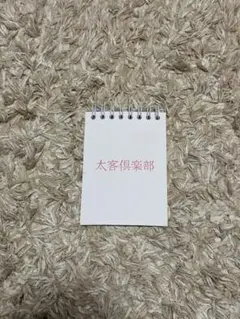 太客倶楽部